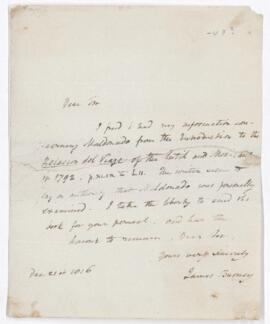 Dear Sir
I find I had my information con-
cerning Maldonado from the Introduction to the
Relacion del Viage of the Sutil and Mexicana
in 1792. p.
on authority that Maldonado was personally
examined. I take the liberty to send the
book for your perusal. and has the
honour to remain, Dear Sir,
Yours very sincerely
James Burney
Dec 21st 1816